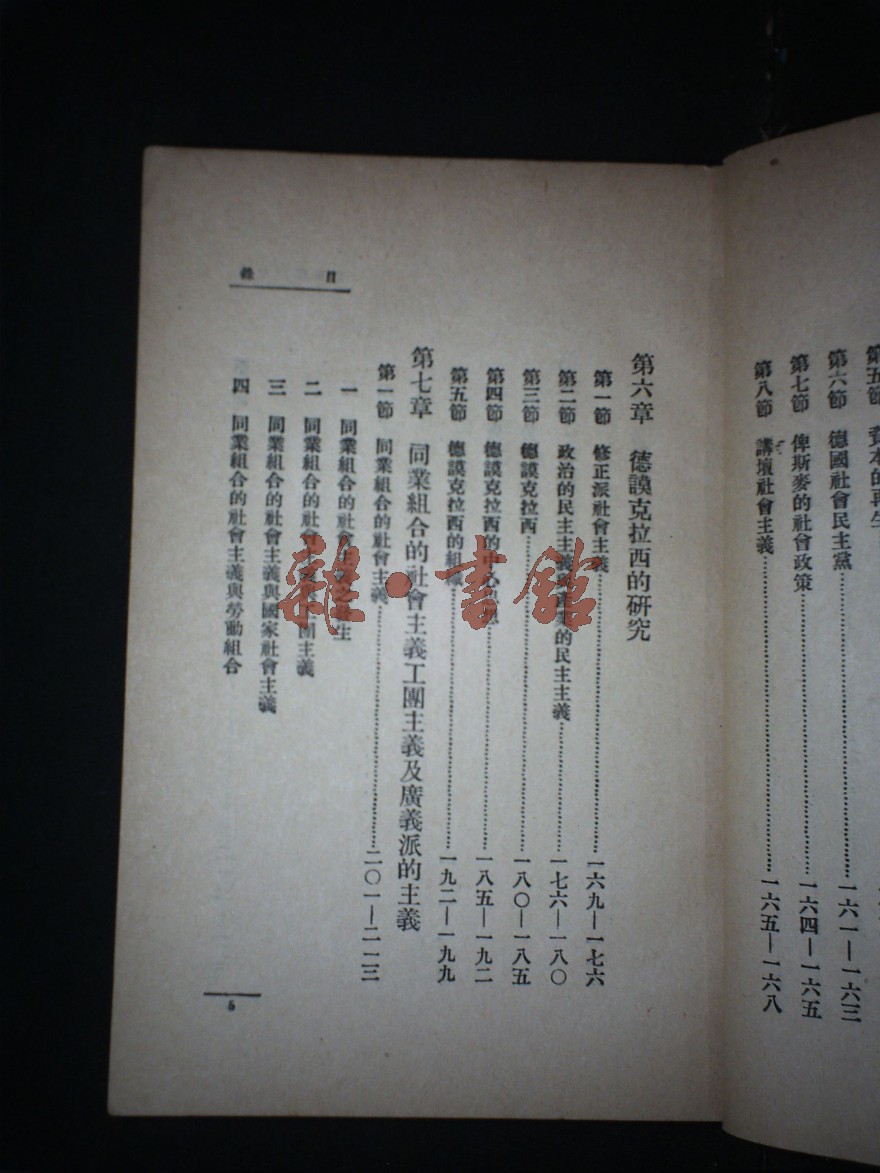 第五節 資本的再生
第六節 德國社會民主黨 一六一—一六三
第七節 俾斯麥的社會政策 一六四—一六五
第八節 講壇社會主義 一六五—一六八
目錄
第六章 德謨克拉西的研究
第一節 修正派社會主義 一六九—一七六
第二節 政治的民主主義 的民主主義 一七六—一八〇
第三節 德謨克拉西 一八〇—一八五
第四節 德謨克拉西的中心思想 一八五—一九二
第五節 德謨克拉西的組織 一九二—一九九
第七章 同業組合的社會主義工團主義及廣義派的主義
第一節 同業組合的社會主義 二〇一—二一三
一 同業組合的社會主義之發生
二 同業組合的社會主義 團主義
三 同業組合的社會主義與國家社會主義
四 同業組合的社會主義與勞動組合
5
雜·書館